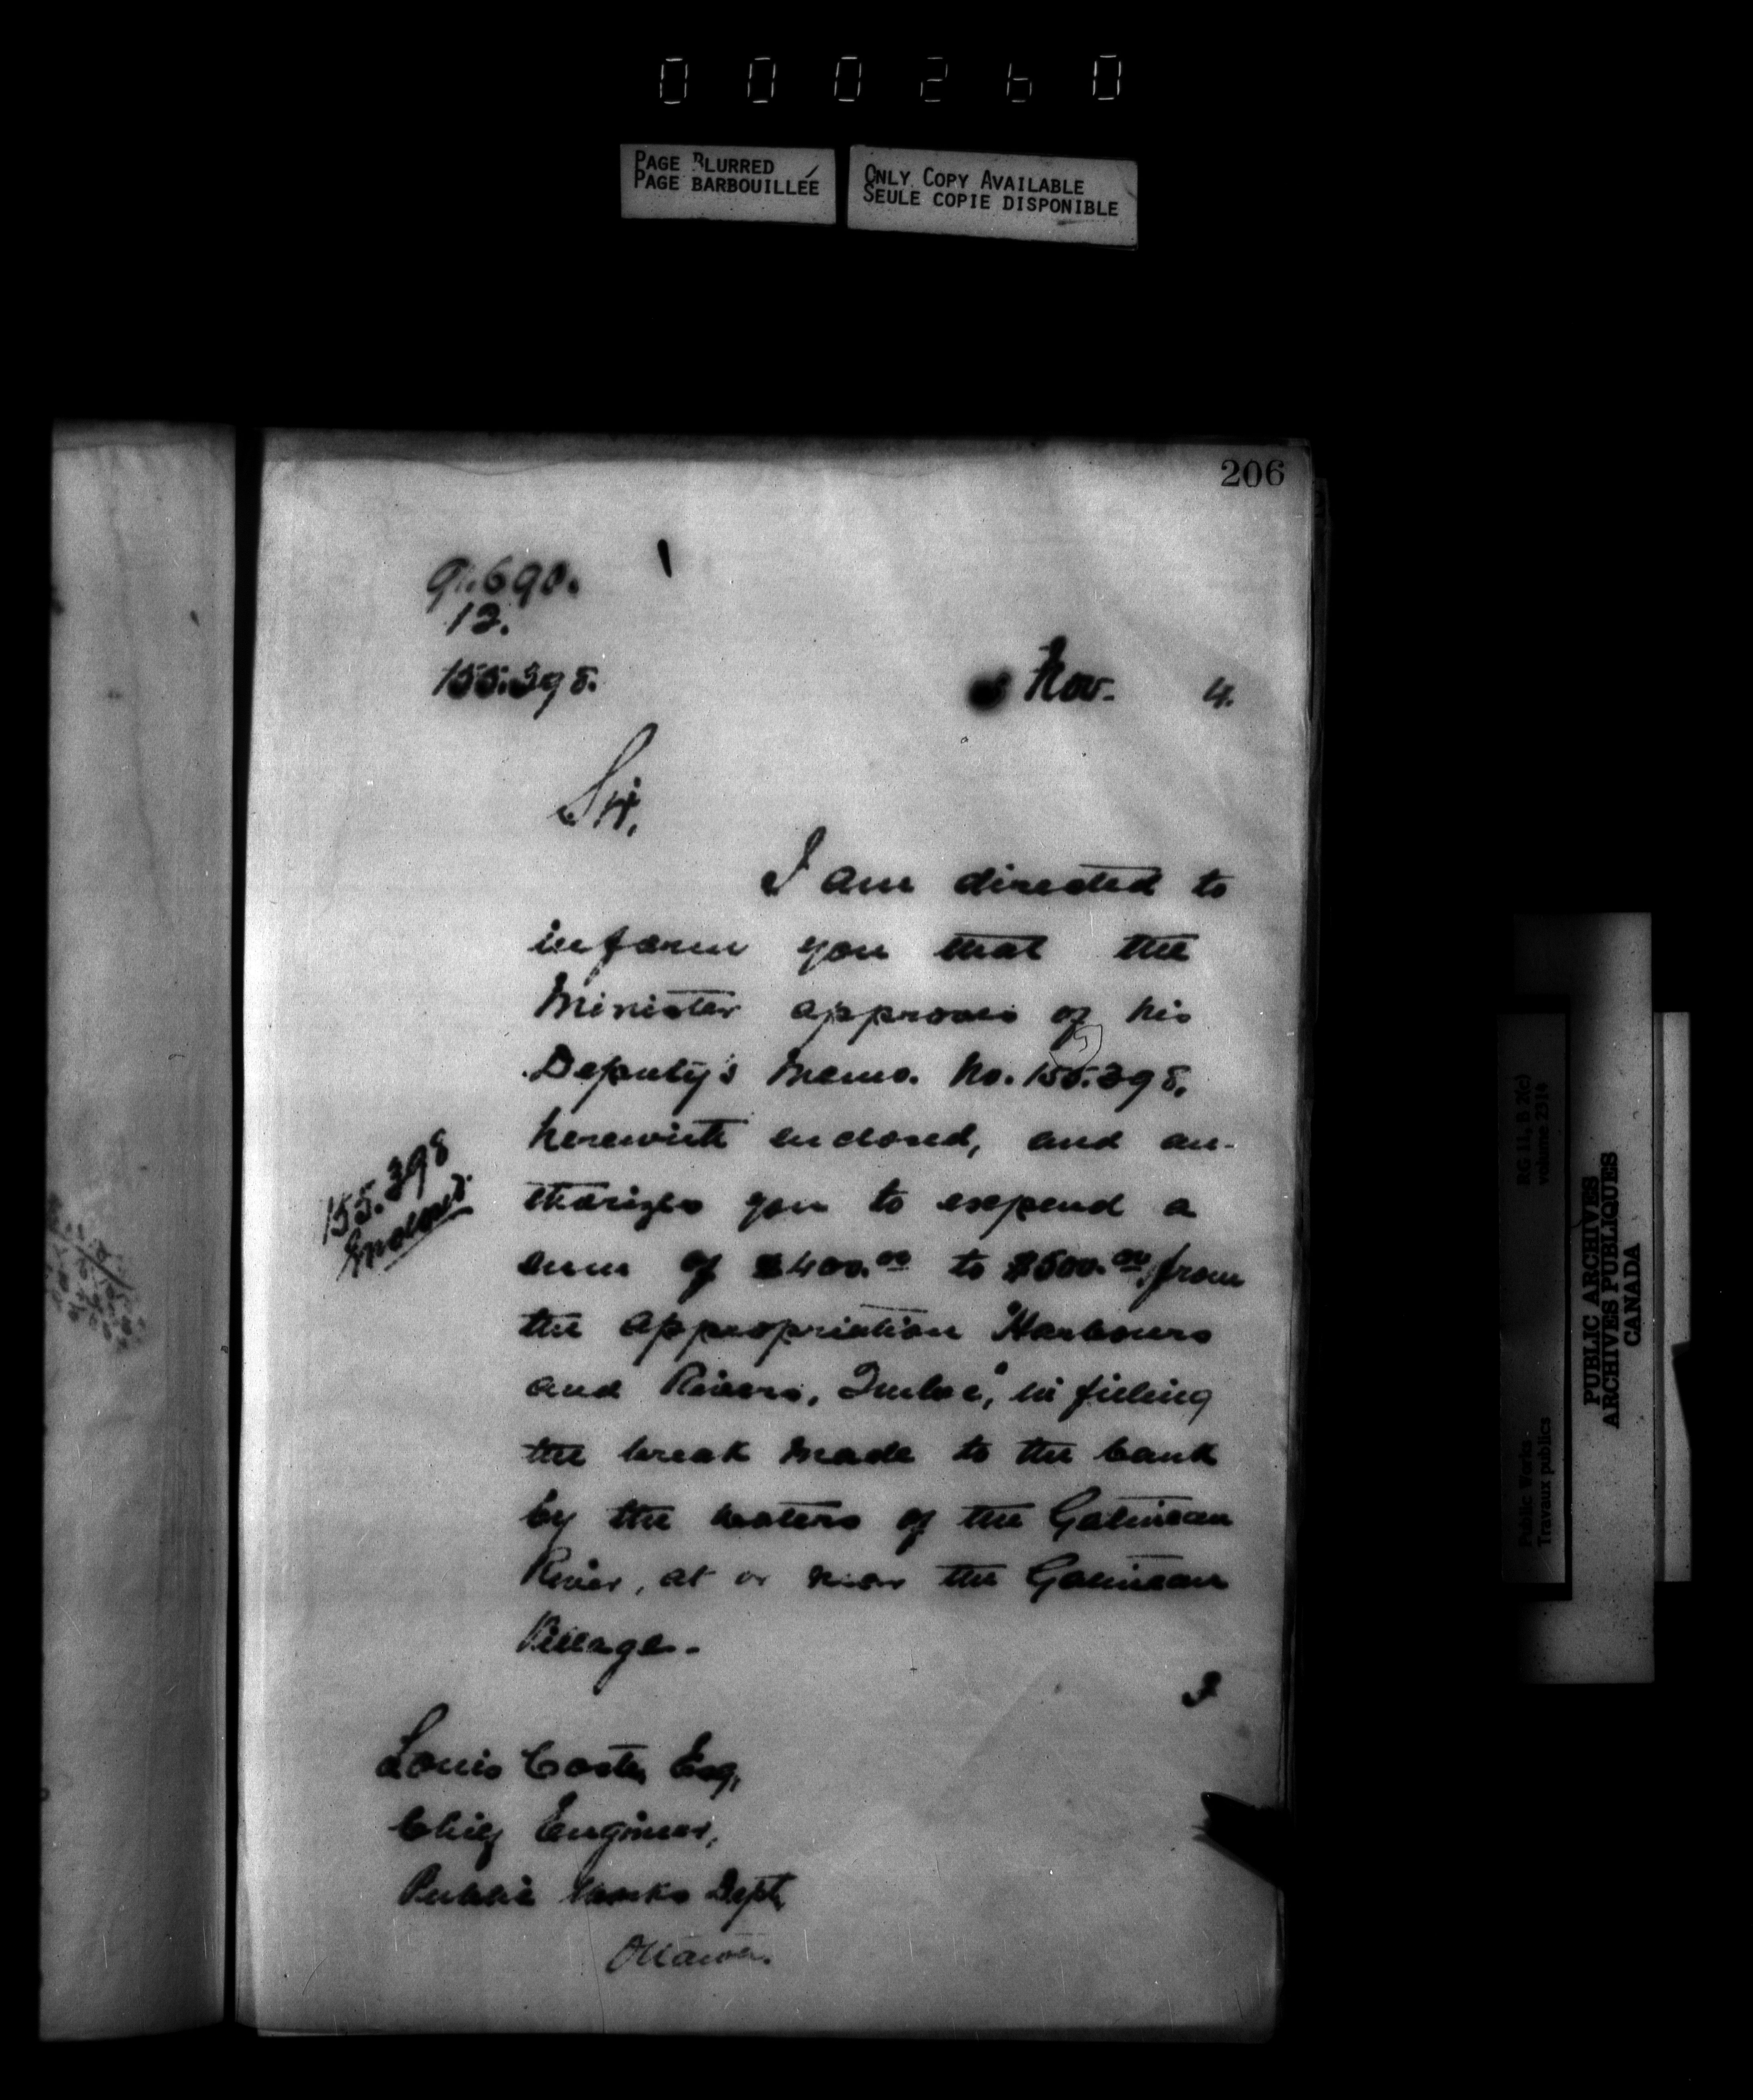 000260
PAGE BLURRED
PAGE BARBOUILLÉE
ONLY COPY AVAILABLE
SEULE COPIE DISPONIBLE
206
91.690.
12.
155.398.
Nov. 4.
Sir,
I am directed to
inform you that the
Minister approves of his
Deputy's Memo. No. 155.398,
herewith enclosed, and au-
thorizes you to expend a
sum of $400.00 to $500.00, from
the appropriation "Harbours
and Rivers, Quebec", in filling
the break made to the bank
by the waters of the Gatineau
River, at or near the Gatineau
Village.-
155.398
Enclosed.
I
Louis Coste, Esq,
Chief Engineer,
Public Works Dept,
Ottawa.
RG 11, B 2(c)
volume 2314
Public Works
Travaux publics
PUBLIC ARCHIVES
ARCHIVES PUBLIQUES
CANADA